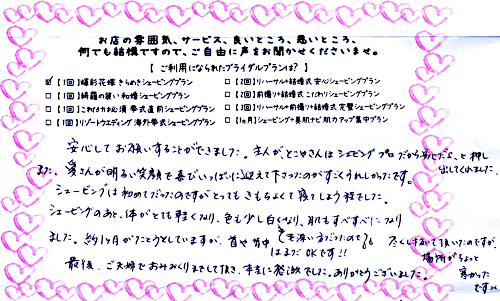 お店の雰囲気、サービス、良いところ、悪いところ、
何でも結構ですので、ご自由に声をお聞かせくださいませ。
【 ご利用になられたブライダルプランは? 】
☑【1回】曙彩花嫁 きらめきシェービングプラン
□【1回】綺羅の装い和婚シェービングプラン
□【1回】これだけは必須 挙式直前シェービングプラン
□【1回】リゾートウエディング 海外挙式シェービングプラン
□【2回】リハーサル+結婚式 安心シェービングプラン
□【2回】前撮り+結婚式 こだわりシェービングプラン
□【3回】リハーサル+前撮り+結婚式 完璧シェービングプラン
□【1ヶ月】シェービング+美肌ナビ 肌力アップ集中プラン
安心してお願いすることができました。主人が、とこやさんはシェービングプロだから安心だよ、と押し
出してくれました。
また、奥さんが明るい笑顔で喜びいっぱいに迎えて下さったのがすごくうれしかったです。
シェービングは初めてだったのですがとってもきもちよくて寝てしまう程でした。
シェービングのあと、体がとても軽くなり、色も少し白くなり、肌もすべすべになり
ました。約1ヶ月がたとうとしていますが、首や背中はまだOKです!!
毛深い方だったので
最後、ご夫婦でおみおくりまでして頂き、本当に感激でした。ありがとうございました。
場所がちょっと
寒かった
です